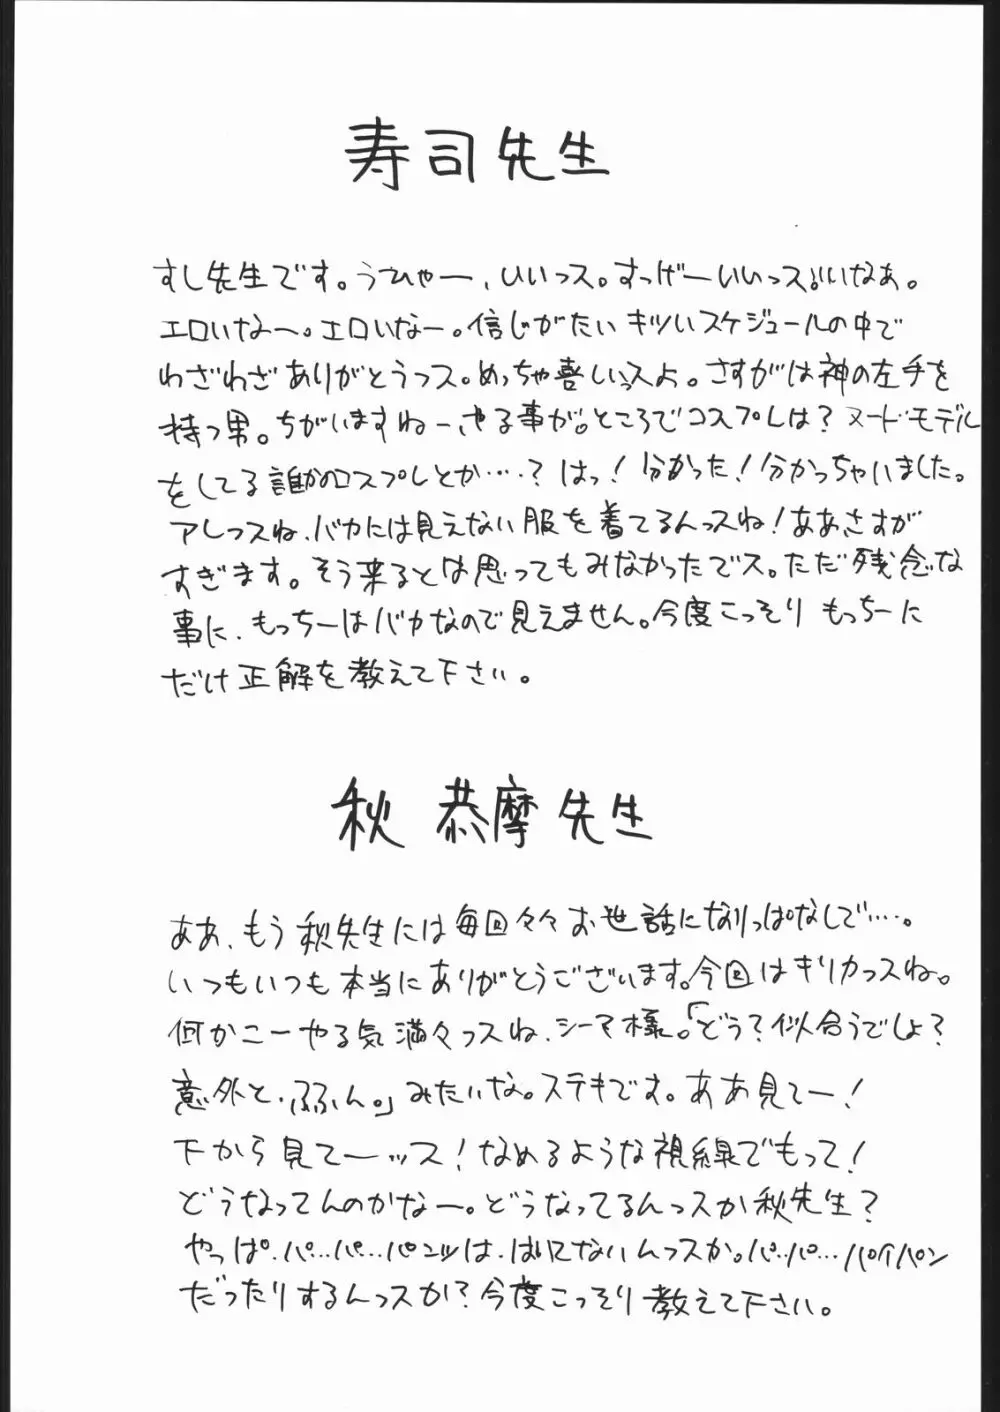 寿司先生
すし先生です。うひゃー、いいっス。すっげーいいっス。いいなぁ。
エロいなー。エロいなー。信じがたいキツいスケジュールの中で
わざわざありがとうっス。めっちゃ喜しいっスよ。さすがは神の左手を
持つ男。ちがいますねーやる事が。ところでコスプレは？ヌードモデル
をしてる誰かのコスプレとか…‥？はっ！分かった！分かっちゃいました。
アレっスね、バカには見えない服を着てるんっスね！ああさすが
すぎます。そう来るとは思ってもみなかったでス。ただ残念な
事に、もっちーはバカなので見えません。今度こっそりもっちーに
だけ正解を教えて下さい。
秋恭摩先生
ああ、もう秋先生には毎回々々お世話になりっぱなしで…‥。
いつもいつも本当にありがとうございます。今回はキリカっスね。
何かこーやる気満々っスね、シーマ様。「どう？似合うでしょ？
意外と、ふふん。」みたいな。ステキです。ああ見てー！
下から見てーッス！なめるような視線でもって！
どうなってんのかなー。どうなってるんっスか秋先生？
やっぱ、パ…パ…パンツは、はいてないんっスか。パ…パ…パイパン
だったりするんっスか？今度こっそり教えて下さい。